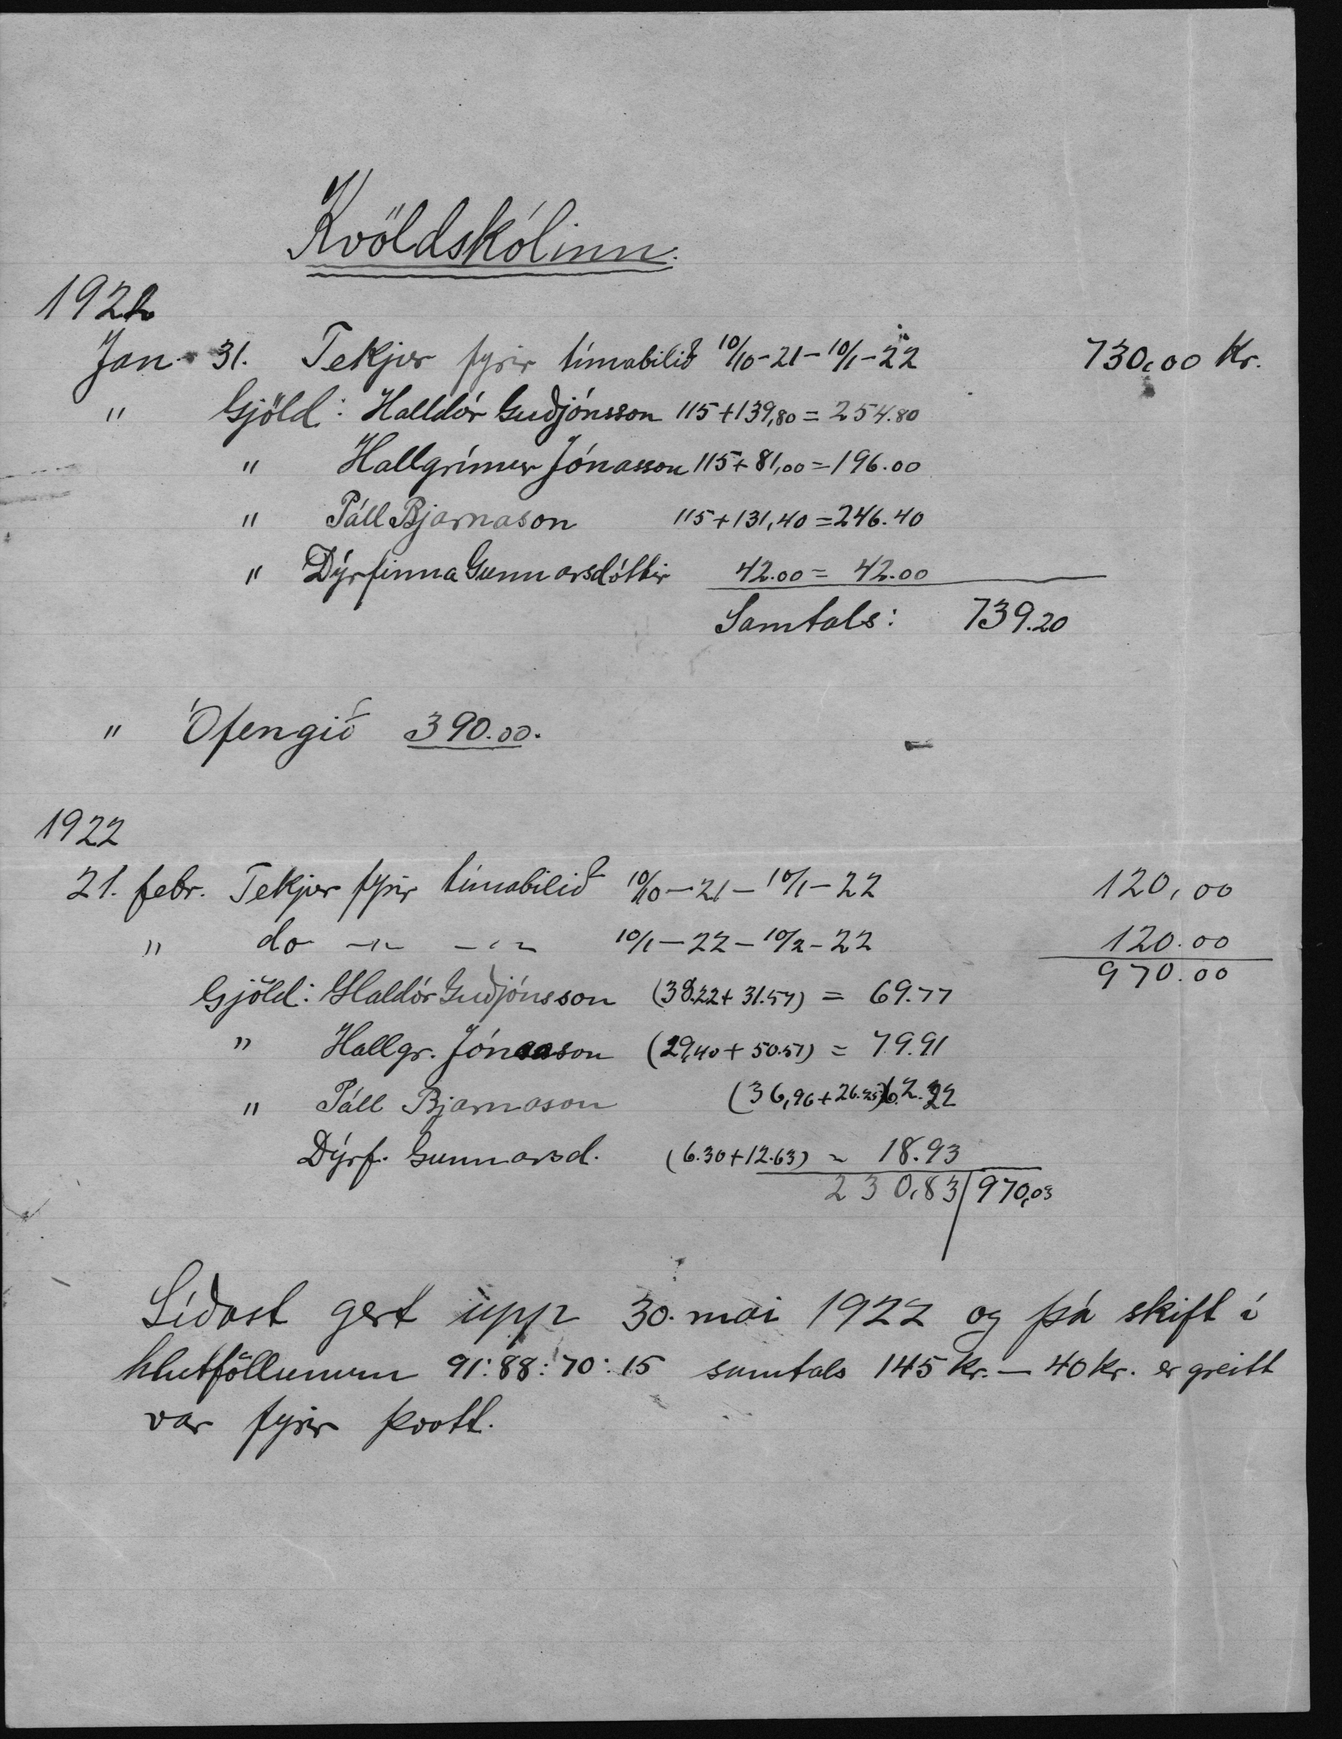 Kvöldskólinn.
1922
Jan. 31. Tekjur fyrir tímabilið 10/10-21-10/1-22 730,00 Kr.
" Gjöld: Halldór Guðjónsson 115+139,80=254.80
" Hallgrímur Jónasson 115+81,00=196.00
" Páll Bjarnason 115+131,40=246.40
" Dýrfinna Gunnarsdóttir 42.00= 42.00
Samtals: 739.20
" Ófengið 390.00.
1922
21. febr. Tekjur fyrir tímabilið 10/10-21-10/1-22 120,00
" do -"- -"- 10/1-22-10/2-22 120.00
970.00
Gjöld: Halldór Guðjónsson (38.22+31.57) = 69.77
" Hallgr. Jónasson (29,40+50.57) = 79.91
" Páll Bjarnason (36,96+26.25) 62.22
Dýrf. Gunnarsd. (6.30+12.63) = 18.93
230,83 970,03
Síðast gert upp 30. mai 1922 og þá skift í
hlutföllunum 91:88:70:15 samtals 145 kr. - 40 kr. er greitt
var fyrir þvott.